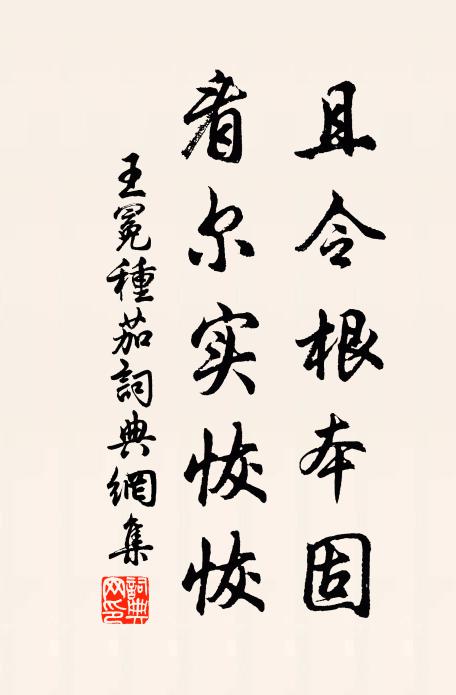 且令根本固
看尔实恢恢
王冕種茄詞典網集
詞典网印